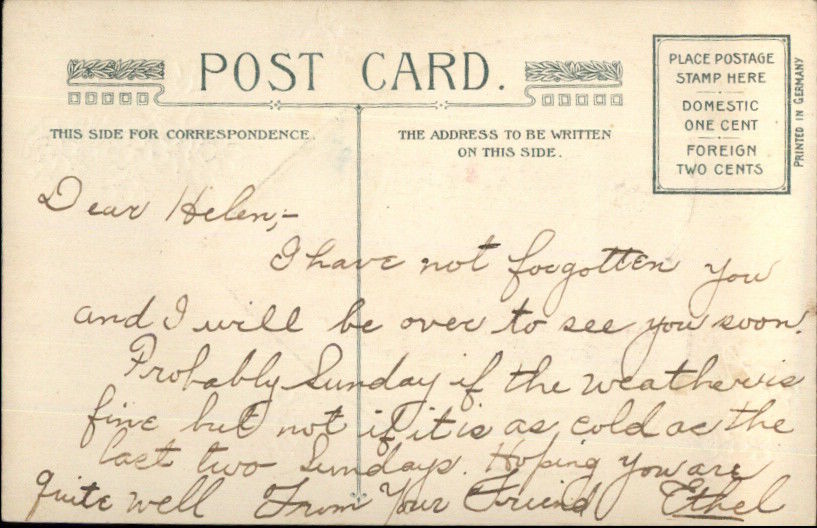 POST CARD.
THIS SIDE FOR CORRESPONDENCE.
THE ADDRESS TO BE WRITTEN
ON THIS SIDE.
PLACE POSTAGE
STAMP HERE
DOMESTIC
ONE CENT
FOREIGN
TWO CENTS
PRINTED IN GERMANY
Dear Helen,-
I have not forgotten you
and I will be over to see you soon.
Probably Sunday if the weather is
fine but not if it is as cold as the
last two Sundays. Hoping you are
quite well From Your Friend Ethel